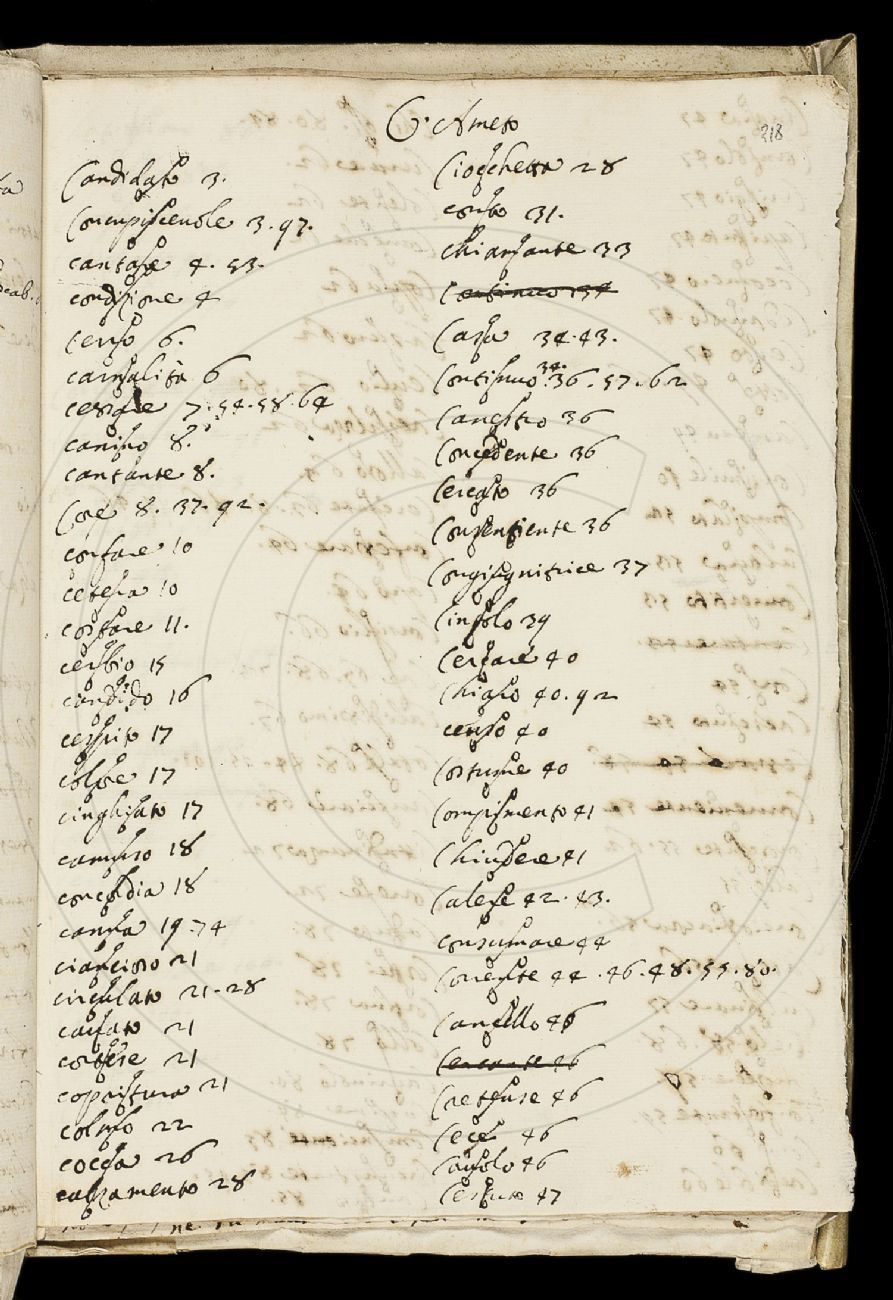 C. Ameto
218
Candidato 3.
Concupiscevole 3. 97.
cantare 4. 53.
condizione 4
Cerro 6.
carnalità 6
7. 54. 58. 64
canino 8.
cantante 8.
Core 8. 37. 92.
confare 10
cetera 10
costare 11.
cerbio 15
candido 16
cespito 17
colpe 17
cinghiato 17
camuso 18
concordia 18
canna 19. 74
ciancioso 21
circulato 21. 28
causato 21
cortese 21
copritura 21
colmo 22
coccia 26
calzamento 28
Ciocchetta 28
conto 31.
chiamante 33
Continuo 34
Cara 34. 43.
Continuo 34. 36. 57. 62
Canestro 36
Concedente 36
Cercato 36
Consentiente 36
Congiugnitrice 37
39
Cercare 40
Chiaro 40. 92
censo 40
Costume 40
Compimento 41
Chiudere 41
Calere 42. 43.
consumare 44
Corrente 44. 46. 48. 55. 80.
46
46
46
46
46
47